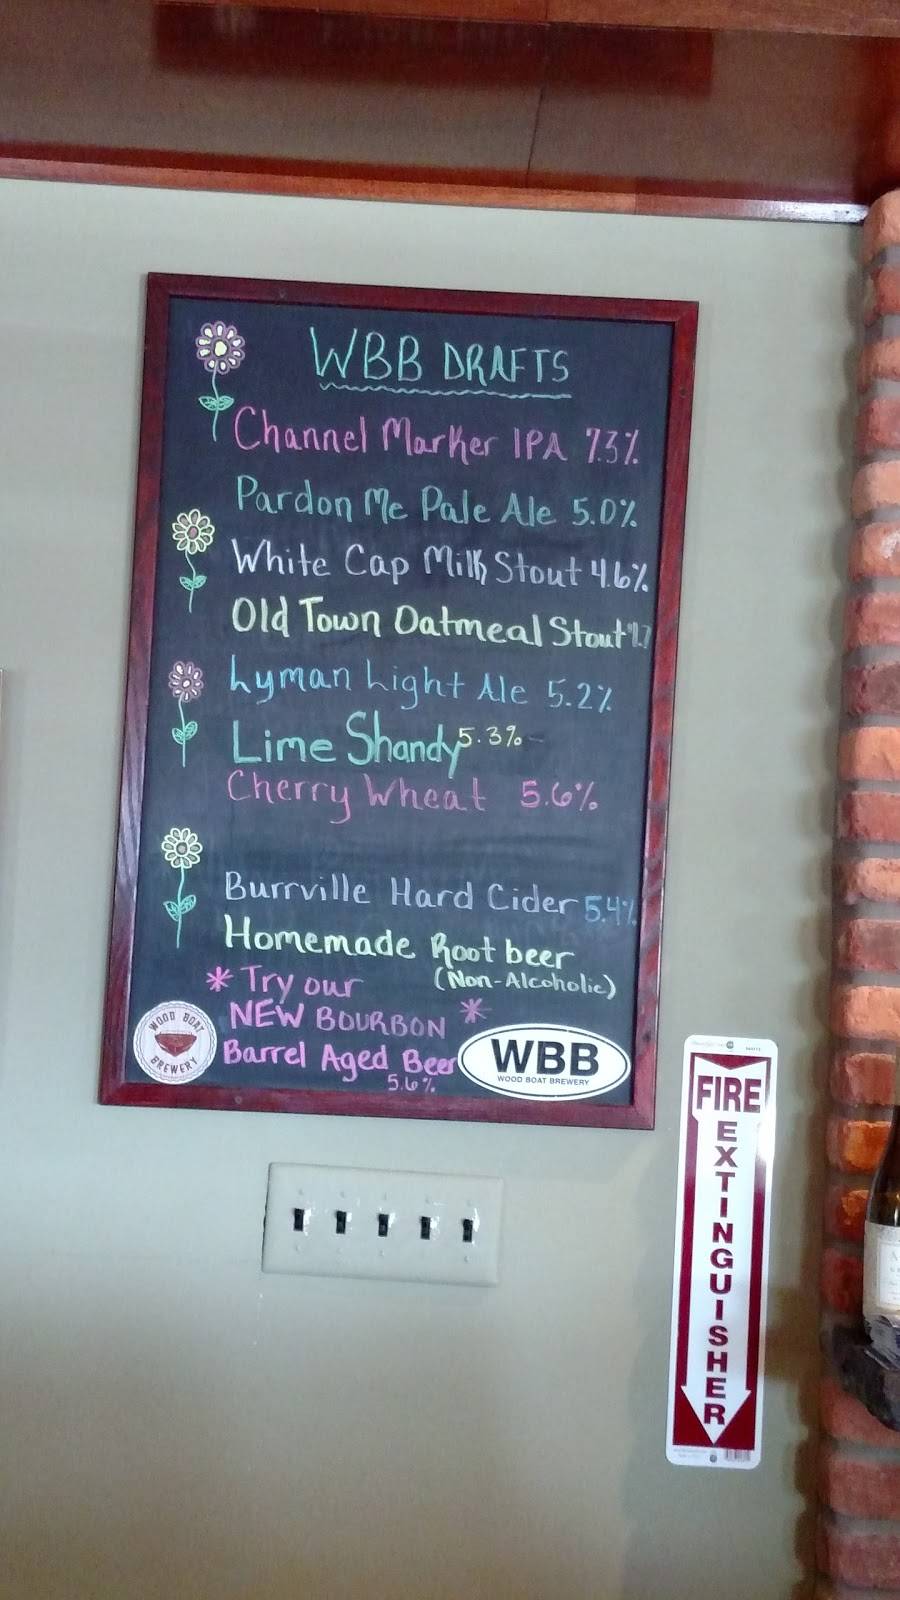 WBB DRAFTS
Channel Marker IPA 7.3%
Pardon Me Pale Ale 5.0%
White Cap Milk Stout 4.6%
Old Town Oatmeal Stout
Lyman Light Ale 5.2%
Lime Shandy 5.3%
Cherry Wheat 5.6%
Burrville Hard Cider 5.4%
Homemade Root beer
(Non-Alcoholic)
* Try our
NEW BOURBON *
Barrel Aged Beer
5.6%
WOOD BOAT
BREWERY
WBB
WOOD BOAT BREWERY
FIRE
EXTINGUISHER